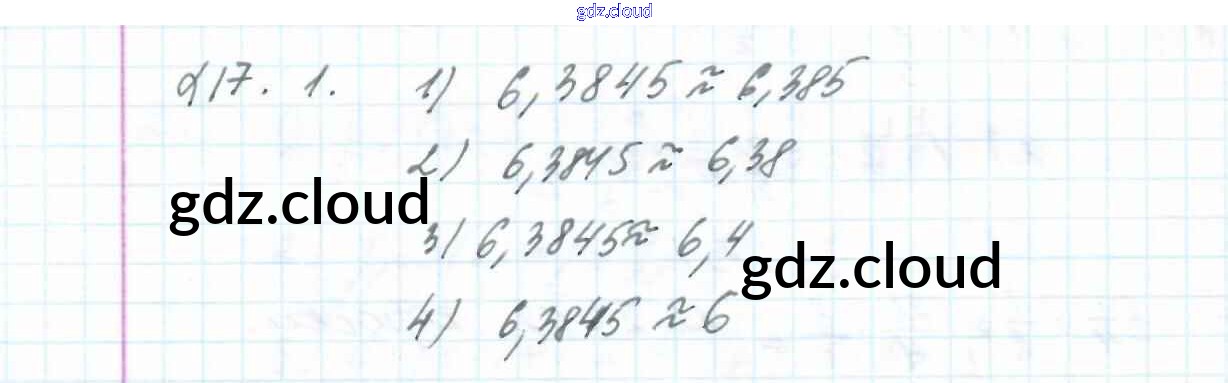 gdz.cloud
217. 1. 1) 6,3845 ≈ 6,385
2) 6,3845 ≈ 6,38
gdz.cloud
3) 6,3845 ≈ 6,4
gdz.cloud
4) 6,3845 ≈ 6